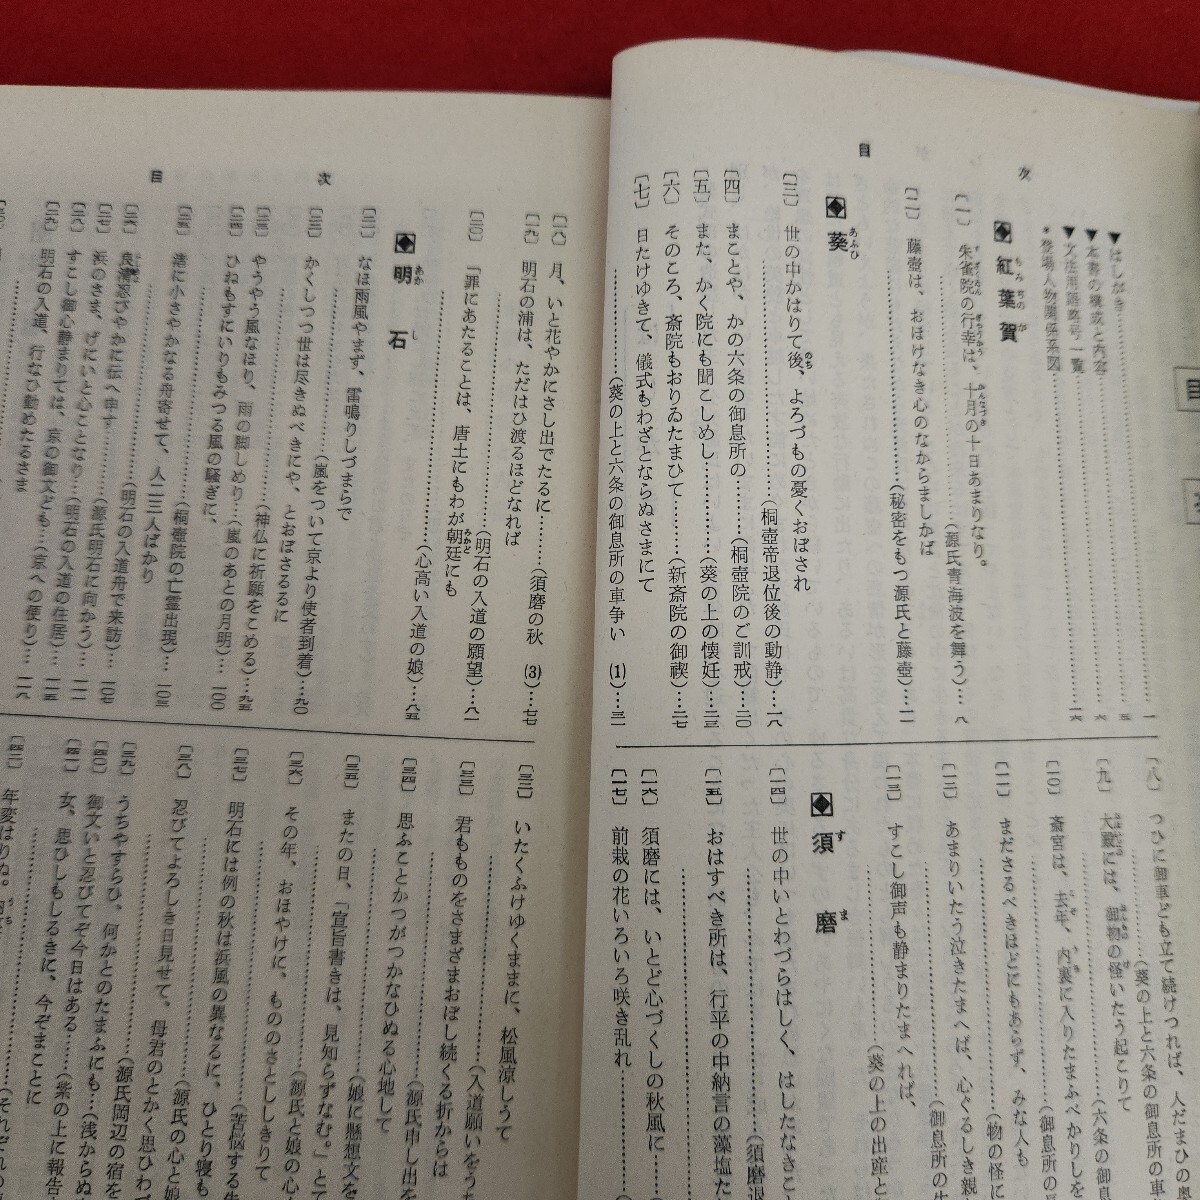 目次
▼はしがき……一
▼本書の構成と内容……五
▼文法用語略号一覧……六
＊登場人物関係系図……一六
紅葉賀
〔一〕 朱雀院の行幸は、十月の十日あまりなり。
……(源氏青海波を舞う)…八
〔二〕 藤壺は、おほけなき心のなからましかば
……(秘密をもつ源氏と藤壺)…一一
葵
〔三〕 世の中かはりて後、よろづもの憂くおぼされ
……(桐壺帝退位後の動静)…一八
〔四〕 まことや、かの六条の御息所の……(桐壺院のご訓戒)…二〇
〔五〕 また、かく院にも聞こしめし……(葵の上の懐妊)…二三
〔六〕 そのころ、斎院もおりゐたまひて……(新斎院の御禊)…二七
〔七〕 日たけゆきて、儀式もわざとならぬさまにて
……(葵の上と六条の御息所の車争い (1))…三一
〔八〕 つひに御車ども立て続けつれば、人だまひの奥
……(葵の上と六条の御息所の車
〔九〕 大殿には、御物の怪いたう起こりて
……(六条の御息
〔一〇〕 斎宮は、去年、内裏に入りたまふべかりしを
……(御息所の
〔一一〕 まださるべきほどにもあらず、みな人も
……(物の怪に
〔一二〕 あまりいたう泣きたまへば、心ぐるしき親
……(御息所の生
〔一三〕 すこし御声も静まりたまへれば、
……(葵の上の出産と
須磨
〔一四〕 世の中いとわづらはしく、はしたなきこ
……(須磨退
〔一五〕 おはすべき所は、行平の中納言の藻塩た
〔一六〕 須磨には、いとど心づくしの秋風に……(
〔一七〕 前栽の花いろいろ咲き乱れ……(
目次
〔一八〕 月、いと花やかにさし出でたるに……(須磨の秋 (3))…七七
〔一九〕 明石の浦は、ただはひ渡るほどなれば
……(明石の入道の願望)…八一
〔二〇〕 「罪にあたることは、唐土にもわが朝廷にも
……(心高い入道の娘)…八五
明石
〔二一〕 なほ雨風やまず、雷鳴りしづまらで
……(嵐をついて京より使者到着)…九〇
〔二二〕 かくしつつ世は尽きぬべきにや、とおぼさるるに
……(神仏に祈願をこめる)…九五
〔二三〕 やうやう風なほり、雨の脚しめり……(嵐のあとの月明)…一〇〇
〔二四〕 ひねもすにいりもみつる風の騒ぎに、
……(桐壺院の亡霊出現)…一〇三
〔二五〕 渚に小さやかなる舟寄せて、人二三人ばかり
……(明石の入道舟で来訪)…一〇七
〔二六〕 良清忍びやかに伝へ申す……(源氏明石に向かう)…一一一
〔二七〕 浜のさま、げにいと心ことなり……(明石の入道の住居)…一一五
〔二八〕 すこし御心静まりては、京の御文ども……(京への便り)…一一八
〔二九〕 明石の入道、行なひ勤めたるさま
〔三〇〕
〔三二〕 いたくふけゆくままに、松風涼しうて
……(入道願いをうち
〔三三〕 君もものをさまざまおぼし続くる折からは
……(源氏申し出を
〔三四〕 思ふことかつがつかなひぬる心地して
……(娘に懸想文を
〔三五〕 またの日、「宣旨書きは、見知らずなむ。」とて
……(源氏と娘の心
〔三六〕 その年、おほやけに、もののさとししきりて
……(苦悩する朱
〔三七〕 明石には例の秋は浜風の異なるに、ひとり寝も
……(源氏の心と娘
〔三八〕 忍びてよろしき日見せて、母君のとかく思ひわづ
……(源氏岡辺の宿を
〔三九〕 うちやすらひ、何かとのたまふにも…(浅からぬ
〔四〇〕 御文いと忍びてぞ今日はある……(紫の上に報告
〔四一〕 女、思ひしもしるきに、今ぞまことに
……(それぞれの
〔四二〕 年変はりぬ。